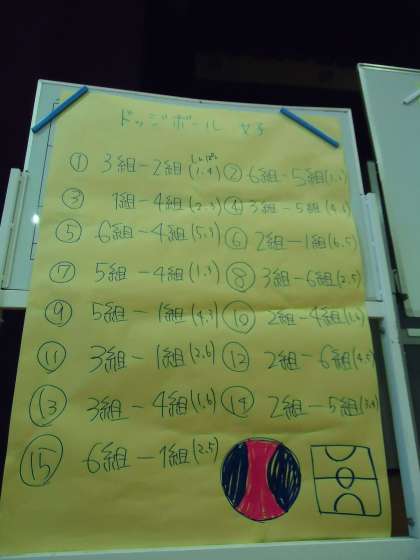 ドッジボール 女子
① 3組-2組(1.4) ② 6組-5組(1.3)
③ 1組-4組(2.3) ④ 3組-5組(4.6)
⑤ 6組-4組(5.3) ⑥ 2組-1組(6.5)
⑦ 5組-4組(1.3) ⑧ 3組-6組(2.5)
⑨ 5組-1組(4.3) ⑩ 2組-4組
⑪ 3組-1組(2.6) ⑫ 2組-6組(4.5)
⑬ 3組-4組(1.6) ⑭ 2組-5組(3.4)
⑮ 6組-1組(2.5)